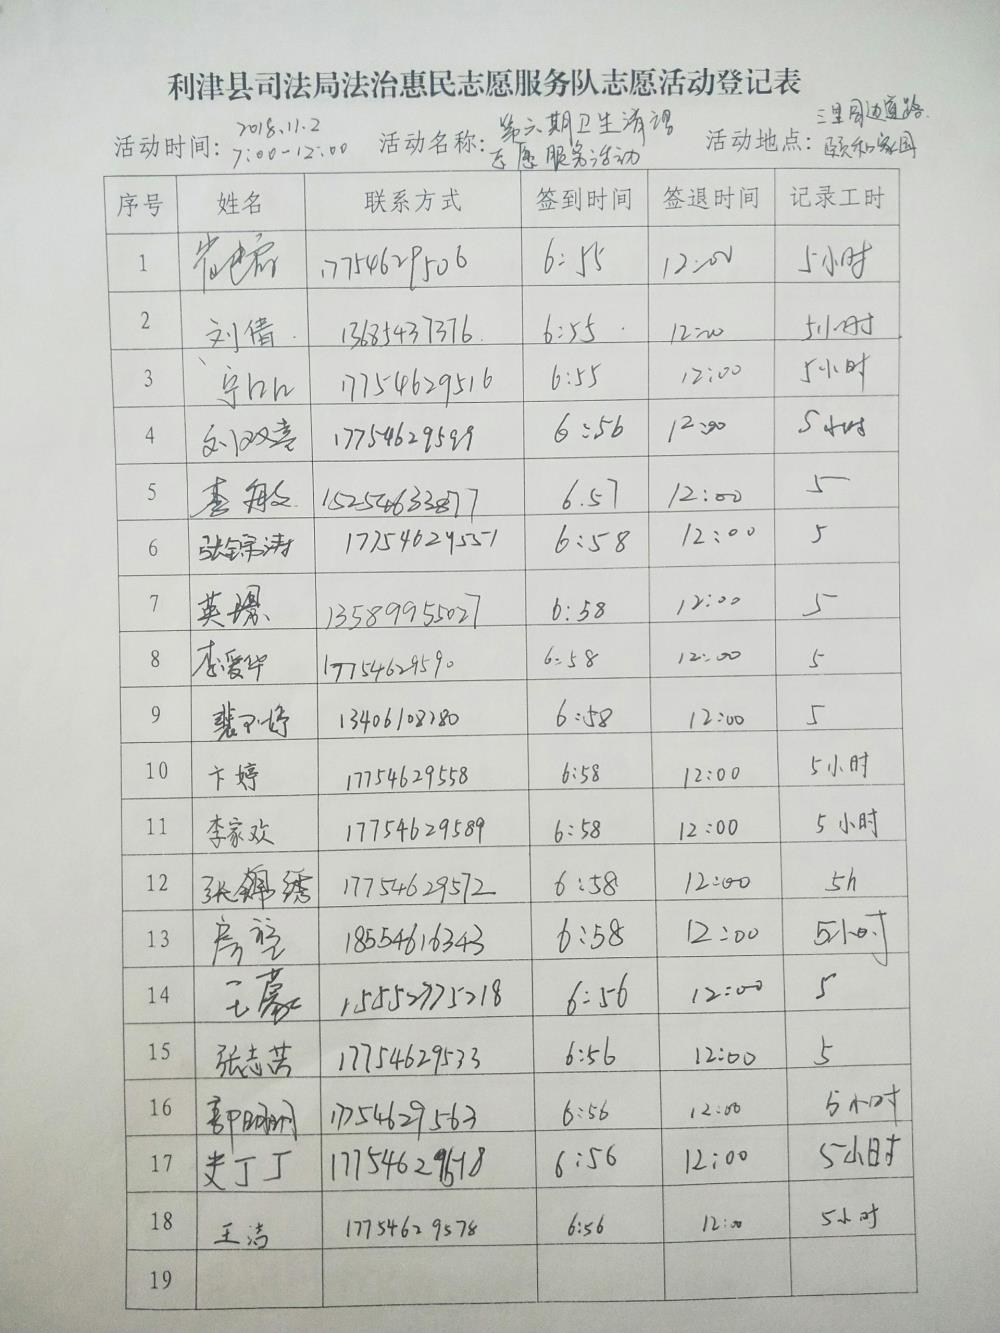 利津县司法局法治惠民志愿服务队志愿活动登记表
活动时间: 2018.11.2 7:00-12:00 活动名称: 第六期卫生清理志愿服务活动 活动地点: 三里周边道路 颐和家园
序号 姓名 联系方式 签到时间 签退时间 记录工时
1 17754629506 6:55 12:00 5小时
2 刘倩 13685437376 6:55 12:00 5小时
3 17754629516 6:55 12:00 5小时
4 17754629599 6:56 12:00 5小时
5 李敏 15254633877 6.57 12:00 5
6 17754629551 6:58 12:00 5
7 13589955027 6:58 12:00 5
8 李爱华 17754629590 6:58 12:00 5
9 13406108280 6:58 12:00 5
10 卞婷 17754629558 6:58 12:00 5小时
11 李家欢 17754629589 6:58 12:00 5小时
12 张锦绣 17754629572 6:58 12:00 5h
13 18554616343 6:58 12:00 5小时
14 王蒙 15552775218 6:56 12:00 5
15 17754629533 6:56 12:00 5
16 17754629563 6:56 12:00 5小时
17 史丁丁 6:56 12:00 5小时
18 王洁 17754629578 6:56 12:00 5小时
19